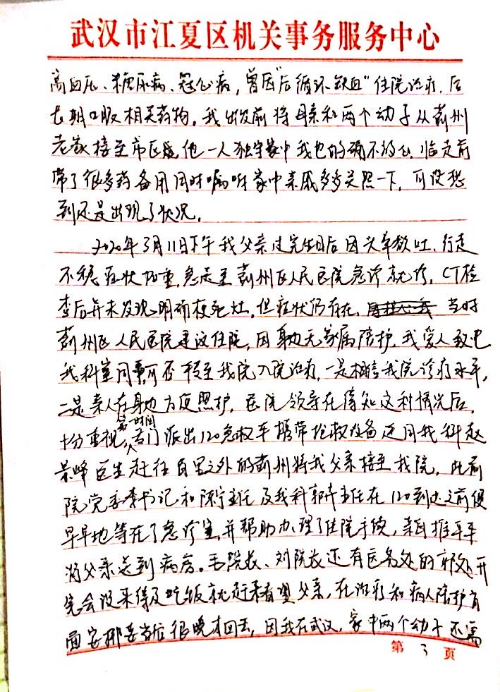 武汉市江夏区机关事务服务中心
高血压、糖尿病、冠心病,曾因"后循环缺血"住院治疗,后
长期口服相关药物。我出发前将母亲和两个幼子从蓟州
老家接至市区,他一人独守家中我也的确不放心,临走前
带了很多药备用同时嘱咐家中亲戚多多关照一下,可没想
到还是出现了状况。
2020年3月11日下午我父亲过完生日后因头晕欲吐、行走
不稳症状加重,急送至蓟州区人民医院急诊就诊,CT检
查后并未发现明确梗死灶,但症状仍存在,当时
蓟州区人民医院建议住院,因身边无家属陪护,我爱人致电
我科室同事可否接至我院入院治疗,一是相信我院诊疗水平,
二是亲人在身边方便照护,医院领导在得知这种情况后,
十分重视,第一时间专门派出120急救车携带抢救设备连同我科赵
景峰医生赶往百里之外的蓟州将我父亲接至我院,此前
院党委书记和陈主任及我科主任在120到达之前便
早早地等在了急诊室,并帮助办理了住院手续,亲自推平车
将父亲送到病房。院长、刘院长还有医务处的处开
完会没来得及吃饭就赶来看望父亲,在治疗和病人陪护方
面安排妥当后很晚才回去,因我在武汉,家中两个幼子还需
第 3 页